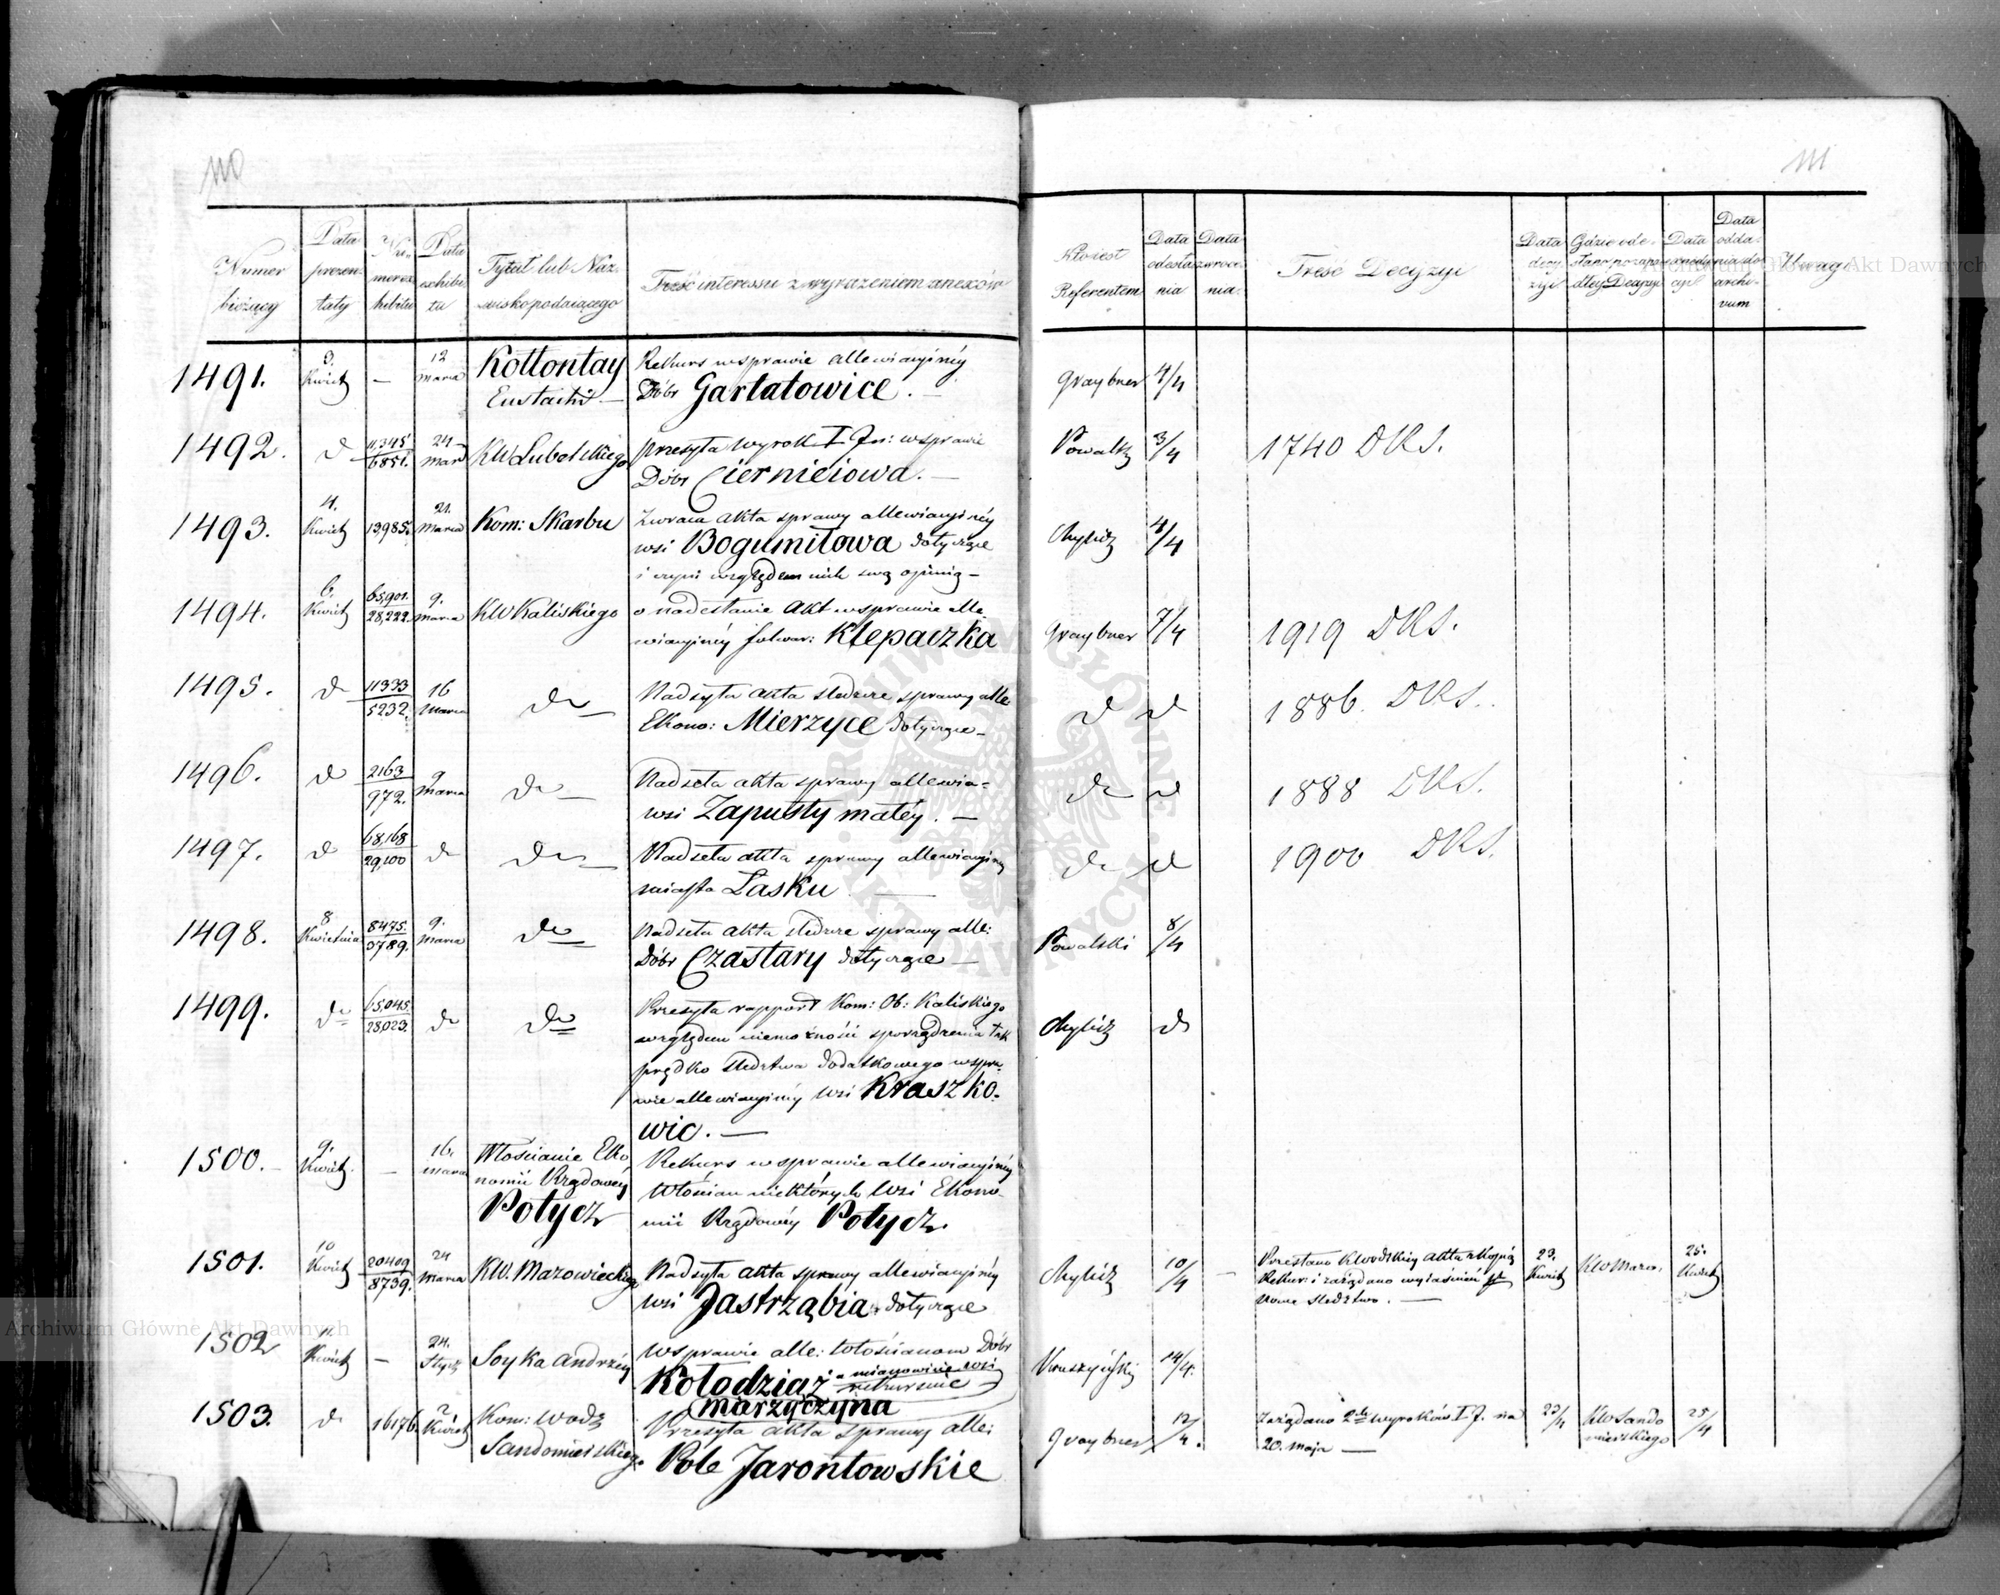 110
Numer bieżący
Data prezentaty
Numer exhibitu
Data exhibitu
Tytuł lub Nazwisko podaiącego
Treść interessu z wyrażeniem anexów
1491. 3. Kwiet — 12 Marca Kołłontay Eustachi — Rekurs w sprawie allewiacyinéy
Dóbr Gartatowice. —
1492. d 11,345/6851. 24 Mar KW Lubelskiego przesyła wyrok I In: w sprawie
Dóbr Cierniciowa. —
1493. 4. Kwiet 13,985. 21. Marca Kom: Skarbu Zwraca akta sprawy allewiacyinéy
wsi Bogumiłowa dotyczące
i czyni względem nich swą opinią —
1494. 6. Kwiet 65,901./28,222. 9. Marca KW Kaliskiego o nadesłanie Akt w sprawie alle
wiacyinéy folwar: Klepaczka
1495. d 11333/5232. 16 Marca do — Nadsyła akta śledcze sprawy alle
Ekono: Mierzyce dotyczące —
1496. d 2163/972. 9 Marca do — Nadseła akta sprawy allewia=
wsi Zapusty małéy. —
1497. d 68,168/29,100 do do — Nadseła akta sprawy allewiacyiny
miasta Łasku —
1498. 8 Kwietnia 8475./3789. 9. Marca do Nadseła akta śledcze sprawy alle:
Dóbr Czastary dotyczące —
1499. do 65,045./28,023. do do Przesyła rapport Kom: Ob: Kaliskiego
względem niemożności sporządzenia tak
prędko śledztwa dodatkowego w spra-
wie allewiacyinéy wsi Kraszko-
wic. —
1500. 9. Kwiet. — 16. Marca Włościanie Eko
nomii Rządowéy
Potycz Rekurs w sprawie allewiacyinéy
Włościan niektórych Wsi Ekono-
mii Rządowéy Potycz.
1501. 10 Kwiet 20409/8739. 24 Marca KW. Mazowieckiego Nadsyła akta sprawy allewiacyinéy
wsi Jastrząbia dotyczące
1502 11. Kwiet — 24. Stycz Soyka Andrzéy w sprawie alle: włościanom Dóbr
Kołodziąż a mianowicie wsi
marzyczyna
1503. d 16176. 2 Kwiet Kom: Wodz
Sandomierskiego Przesyła akta sprawy alle:
Pole Jarontowskie
111
Kto iest Referentem
Data odesłania
Data zwrócenia
Treść Decyzyi
Data decyzyi
Data oddania do archivum
Uwagi
Graybner 4/4
Powalsk 3/4 1740 DKS.
Chylicz 4/4
Graybner 7/4 1919 DKS.
d d 1886. DKS.
do d 1888 DKS.
do d 1900 DKS.
Powalski 8/4
Chylicz do
Chylicz 10/4 — Przesłano KWodzkiey akta z kopią
Rekur: i zażądano wyiaśnień
nowe śledztwo. — 23. Kwiet KW Mazo. 25. Kwiet
Kruszyński 14/4.
Graybner 12/4. Zażądano wyroków I J. na
20. maja — 23/4 KW Sando
mierskiego 25/4
Archiwum Główne Akt Dawnych
Archiwum Główne Akt Dawnych
ARCHIWUM GŁÓWNE AKT DAWNYCH